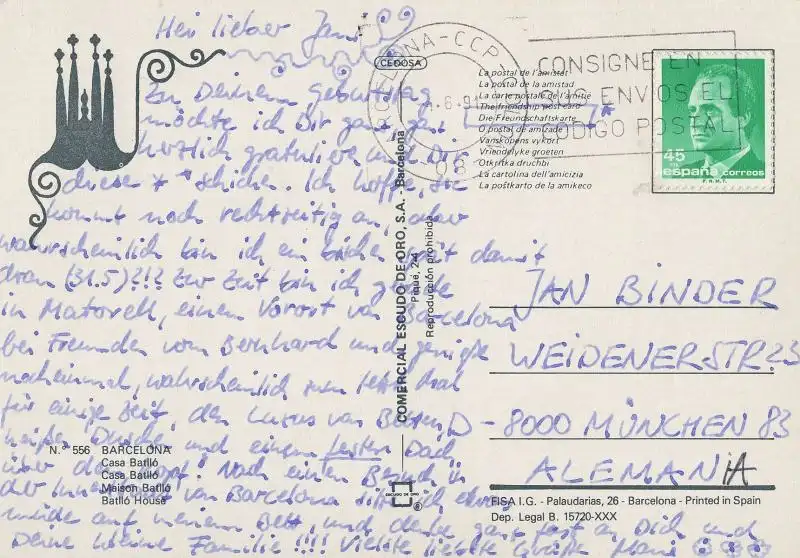 Hei lieber Jani
Zu Deinem Geburtstag
möchte ich Dir ganz, ganz
herzlich gratulieren und Dir
diese * schicken. Ich hoffe, sie
kommt noch rechtzeitig an, aber
wahrscheinlich bin ich ein bichen spät damit
dran (31.5)?!? Zur Zeit bin ich gerade
in Matorell, einem Vorort von Barcelona
bei Freunden vom Bernhard und genieße
nocheinmal, wahrscheinlich zum letzten Mal
für einige Zeit, den Luxus von Betten,
heißer Dusche und einem festen Dach
über dem Kopf! Nach einem Besuch in
der Innenstadt von Barcelona sitze ich etwas
müde auf meinem Bett, und denke ganz fest an Dich und
Deine kleine Familie !!!! Viele liebe Grüße
N.º 556 BARCELONA
Casa Batlló
Casa Batlló
Maison Batlló
Batlló House
CEDOSA
COMERCIAL ESCUDO DE ORO, S.A. - Barcelona
Piqué, 2-4
Reproducción prohibida
ESCUDO DE ORO
®
La postal de l'amistat
La postal de la amistad
La carte postale de l'amitié
The friendship post card
Die Freundschaftskarte
O postal de amizade
Vänskapens vykort
Vriendelyke groeten
Otkritka druchbi
La cartolina dell'amicizia
La poštkarto de la amikeco
BARCELONA-CCP
CONSIGNE EN
SUS ENVIOS EL
CODIGO POSTAL
45
españa CORREOS
F.N.M.T.
JAN BINDER
WEIDENERSTR. 23
D - 8000 MÜNCHEN 83
ALEMANIA
FISA I.G. - Palaudarias, 26 - Barcelona - Printed in Spain
Dep. Legal B. 15720-XXX